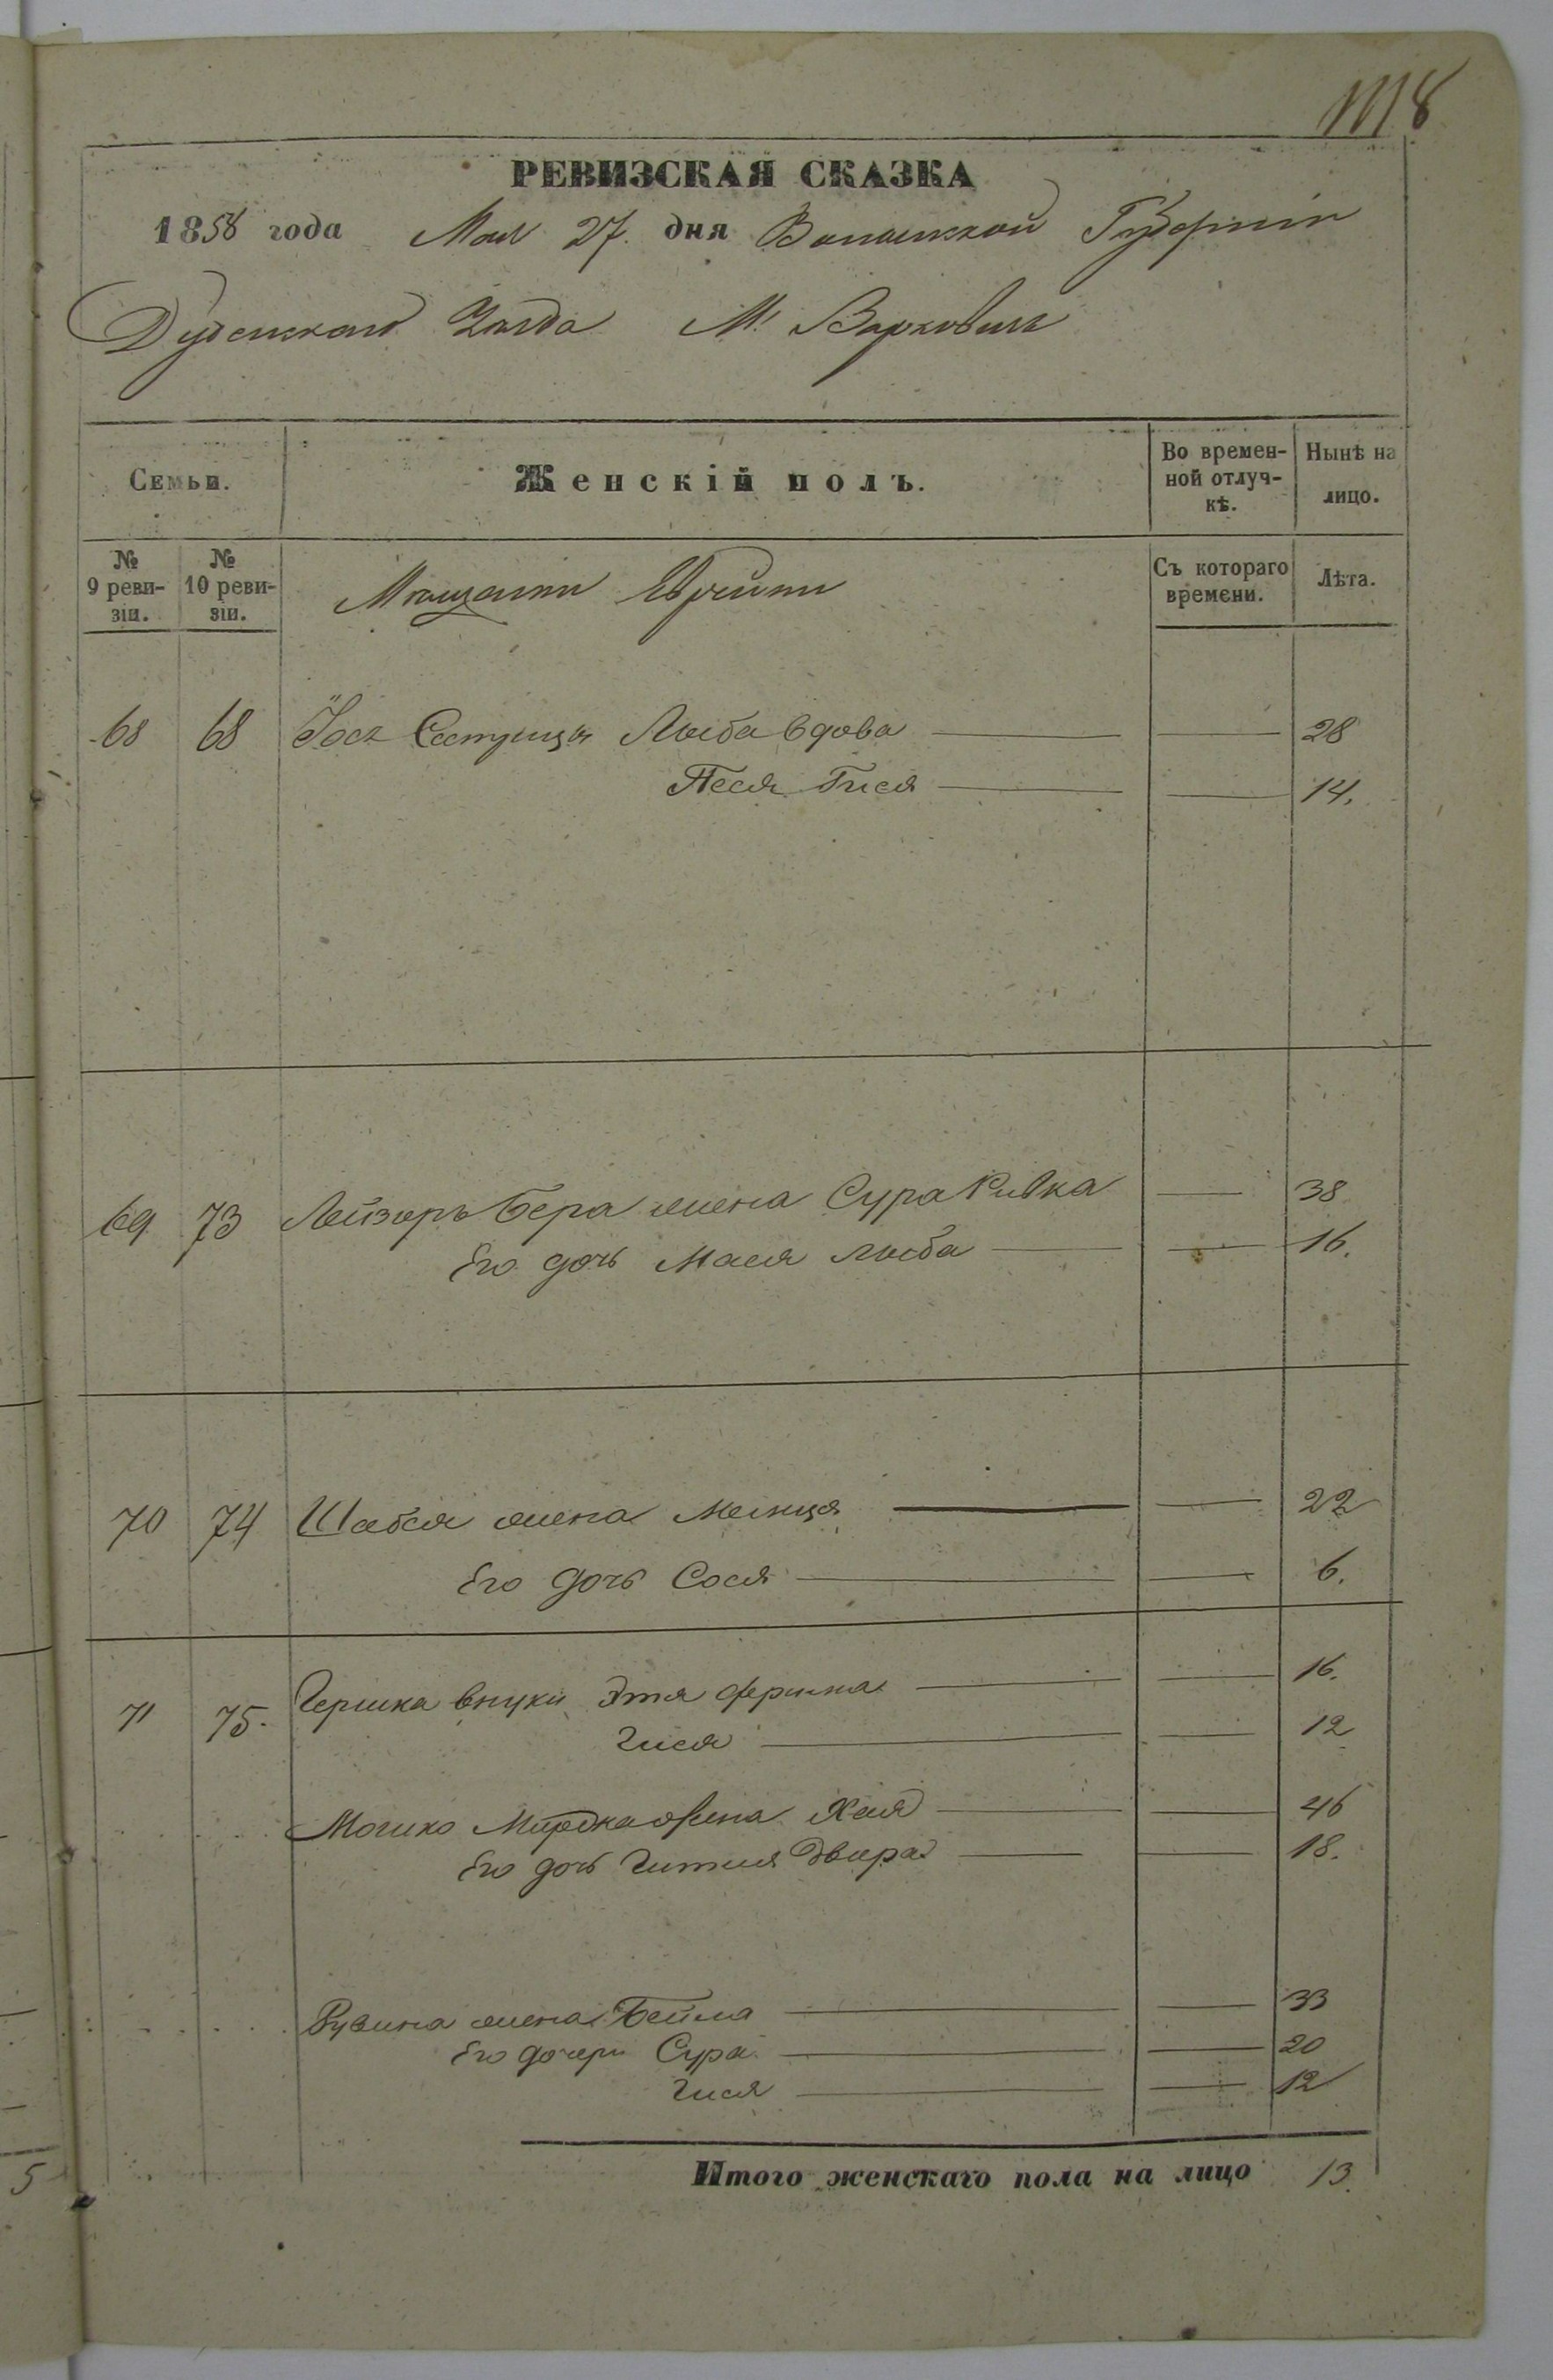 1118
РЕВИЗСКАЯ СКАЗКА
1858 года Мая 27. дня Волынской Губерніи
Дубенскаго Уѣзда М. Варковичь
Семьи. Женскій полъ. Во временной отлучкѣ. Нынѣ на лицо.
№ 9 ревизіи. № 10 ревизіи. Мѣщани Евреини Съ котораго времени. Лѣта.
68 68 Лыба вдова 28
Песя Гися 14.
69 73 Лейзоръ Бера жена Сура Ривка 38
Его дочь Мася лыба 16.
70 74 Шабся жена Менця 22
Его дочь Сося 6.
71 75. Гершка внуки Этя фейга 16.
Гися 12
Мошко жена Хая 46
Его дочь Гитля Двира 18.
Рувина жена Бейла 33
Его дочери Сура 20
Гися 12
Итого женскаго пола на лицо 13.
5